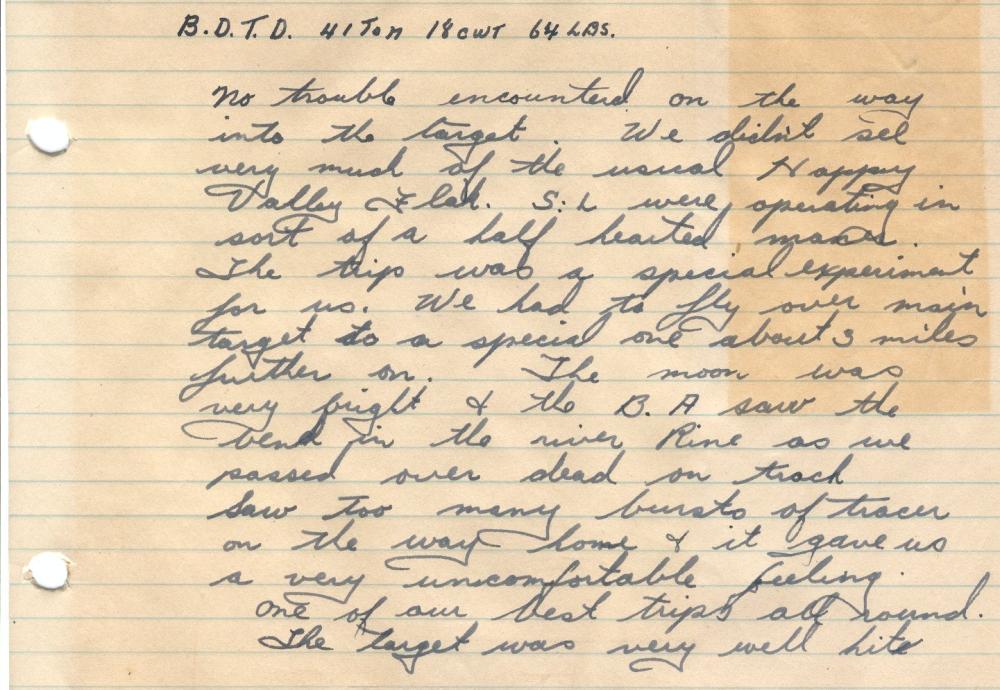 B.D.T.D. 41 Ton 18 cwt 64 LBS.
No trouble encounterd on the way
into the target. We didn't see
very much of the usual Happy
Valley Flak. S:L were operating in
sort of a half hearted maner.
The trip was a special experiment
for us. We had to fly over main
target to a special one about 3 miles
further on. The moon was
very bright & the B.A saw the
bend in the river Rine as we
passed over dead on track
Saw too many bursts of tracer
on the way home & it gave us
a very uncomfortable feeling.
one of our best trips all round.
The target was very well hite